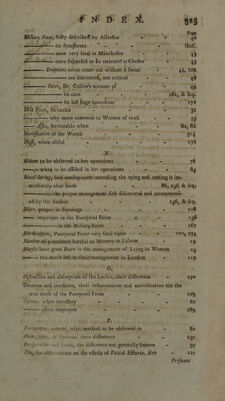 INDEX. 325
Page
Miliary Fever, fully described by Allioniv 40
——— its Symptoms ibid.
——— once very fatal in Manchester 43
——— once supposed to be endemial at Chester 43
——— Eruptions never comes out without a Sweat 44, 128
——— are fabricated, not critical 46
——— Fever, Dr. Cullen's account of 49
——— its cure 161, & seq.
——— its last stage hazardous 171
Milk Fever, its causes 36
——— why more common to Women of rank 52
——— serviceable when 62, 65
Mortification of the Womb 314
Musk, when useful 171
N.
Nature to be observed in her operations 76
——— when to be assisted in her operations 84
Navel String, bad consequences attending the tying and cutting it immediately after birth 86, 256 & seq.
——— the proper management first discovered and recommended by the Author 256, & seq.
Nitre, proper in Gaolings 108
——— improper in the Puerperal Fever 156
——— in the Miliary Fever 167
Northampton, Puerperal Fever very fatal there 110, 294
Number of attendants hurtful to Women in Labour 19
Nurses have great share in the management of Lying in Women 25
——— too much left to their management in London 119
O.
Obstruction and absorption of the Lochia, their difference 130
Omentum and intestines, their inflammation and mortification not the true cause of the Puerperal Fever 103
Opiates when necessary 81
——— when improper 169
P.
Parturition, natural, what method to be observed in 80
Pains, true, or spurious, their difference 231
Perspiration and sweat, the difference not generally known 97
his observations on the effects of Putrid Effluvia. Note 121
Persons